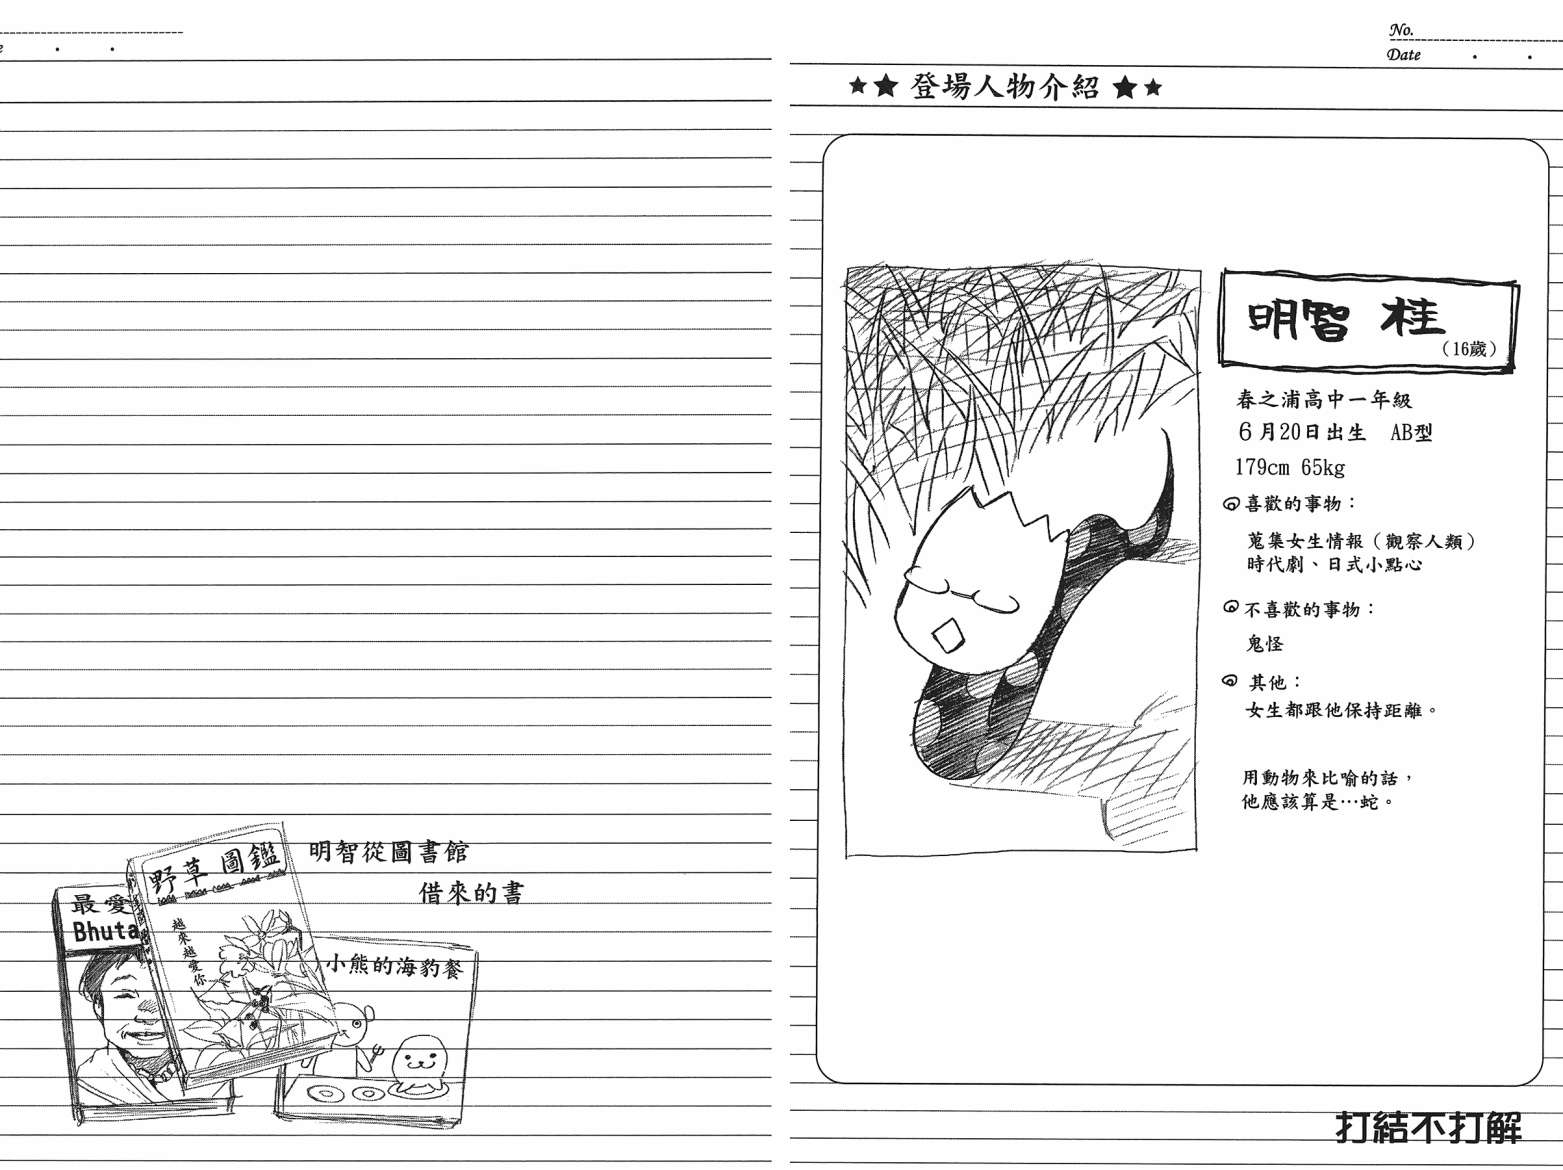 No.
Date
★★ 登場人物介紹 ★★
明智 桂
（16歲）
春之浦高中一年級
6月20日出生　AB型
179cm 65kg
喜歡的事物：
蒐集女生情報（觀察人類）
時代劇、日式小點心
不喜歡的事物：
鬼怪
其他：
女生都跟他保持距離。
用動物來比喻的話，
他應該算是…蛇。
打結不打解
明智從圖書館
借來的書
野草圖鑑
越來越愛你
最愛
Bhuta
小熊的海豹餐